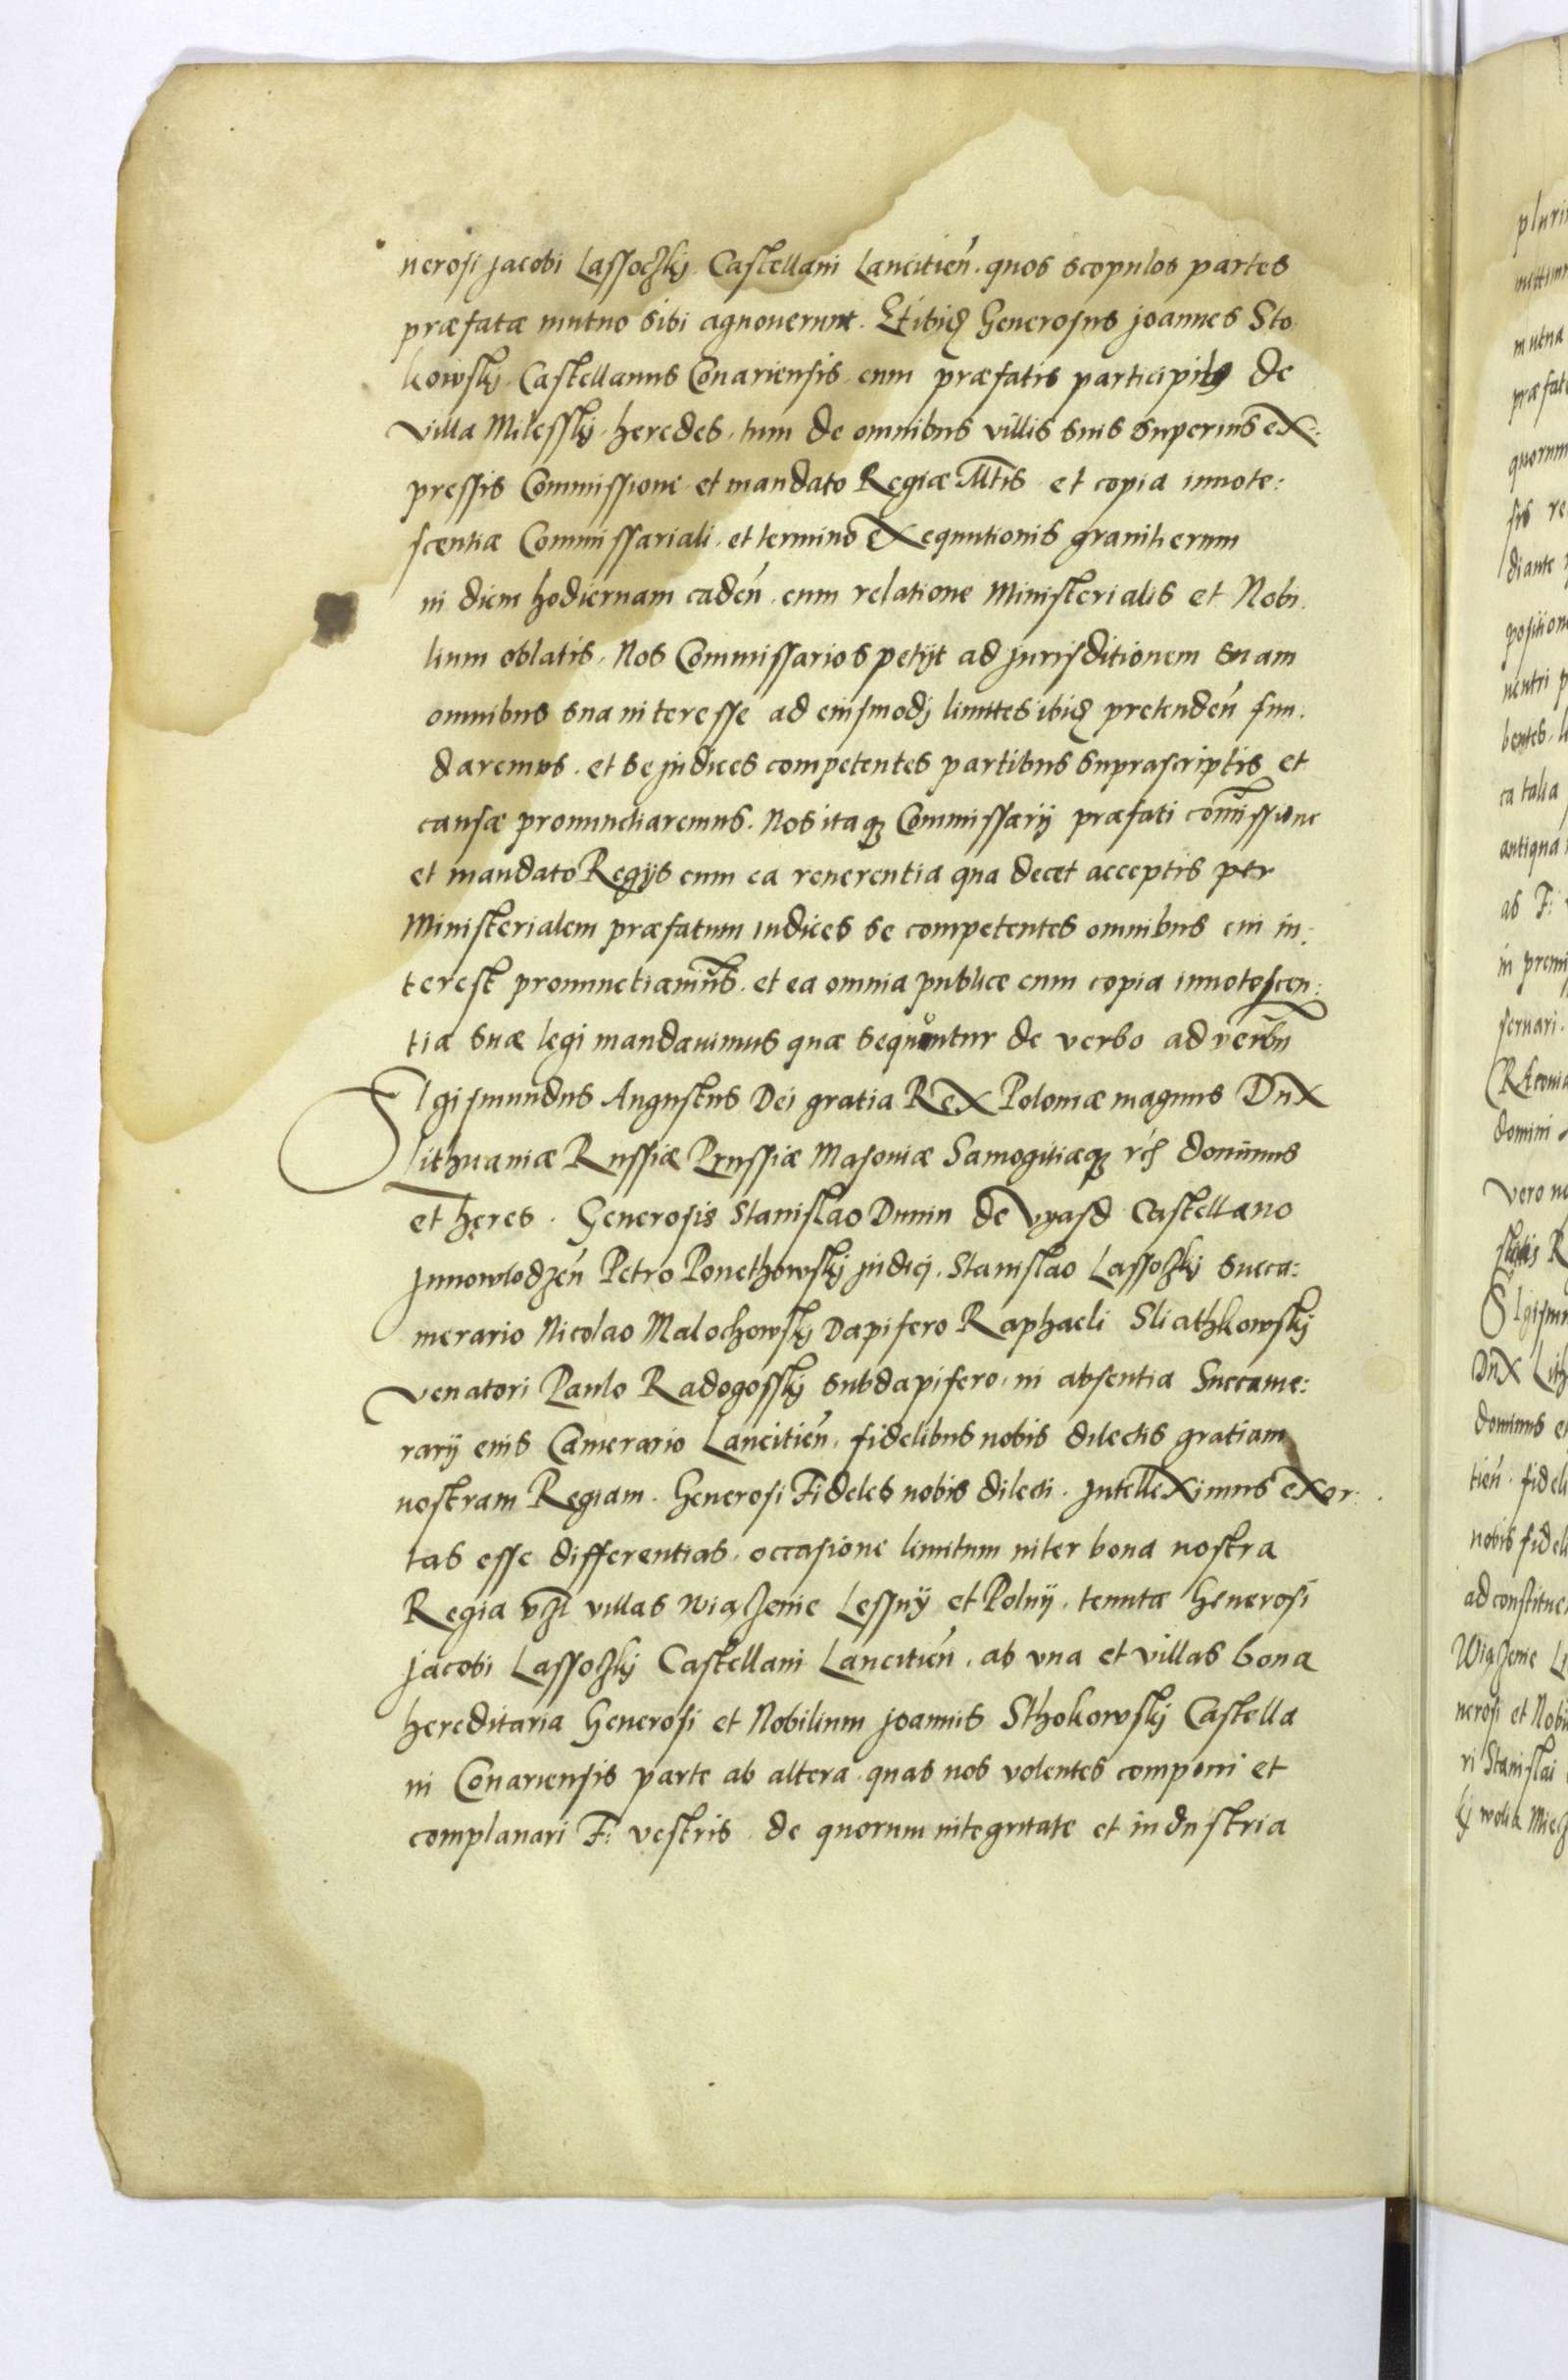 nerosi Jacobi Lassoczkij Castellani Lancitien̄. quos scopulos partes
præfatæ mutuo sibi agnouerunt. Et ibiq Generosus Joannes Sto
kowskij Castellanus Conariensis cum præfatis participibq de
Villa Milesskij heredes, tum de omnibus villis suis superius ex:
pressis Commissione et mandato Regiæ Mtis et copia innote:
scentiæ Commissariali, et termino exequutionis granitierum
in diem hodiernam caden̄. cum relatione Ministerialis et Nobi.
lium oblatis, Nos Commissarios petijt ad jurisditionem suam
omnibus sua interesse ad eiusmodj limittes ibiq pretenden̄ fun:
daremus. et se judices competentes partibus suprascriptis et
causæ pronunctiaremus. Nos itaq Commissarij præfati com̄issione
et mandato Regijs cum ea reuerentia qua decet acceptis per
Ministerialem præfatum iudices se competentes omnibus cui in:
terest pronunctiamūs. et ea omnia publice cum copia innotescen:
tiæ suæ legi mandauimus quæ sequuntur de verbo ad verbū
SIgismundus Augustus Dei gratia Rex Poloniæ magnus Dux
Lithuaniæ Russiæ Prussiæ Masouiæ Samogitiæq rc̄ dominus
et heres. Generosis Stanislao Dunin de Vyasd Castellano
Junowlodzen̄ Petro Ponethowskij judicj. Stanislao Lassoczkij Succa:
merario Nicolao Malochowskij Dapifero Raphaeli Sliathkowskij
Venatori Paulo Radogosskij subdapifero, in absentia Succame:
rarij eius Camerario Lancitien̄. fidelibus nobis dilectis gratiam
nostram Regiam. Generosi Fideles nobis dilecti. Intelleximus exor:
tas esse differentias, occasione limitum inter bona nostra
Regia vz̄l villas Wiązenie Lessnij et Polnij, tenutæ Generosi
Jacobi Lassoczkij Castellani Lancitien̄. ab vna et villas bona
hereditaria Generosi et Nobilium Joannis Sthokowskij Castella
ni Conariensis parte ab altera quas nos volentes componi et
complanari F: vestris de quorum integritate et industria
pluri
mittim
mutna
præfat
quorum
sis re
diante
positione
neutri p
bentes, li
ca talia
antiqua
ab F:
in premi
seruari.
domini
vero no
Sigism
Dux Lith
dominus e
tien̄. fidel
nobis fidel
ad constitue
Wiązenie Le
nerosi et Nobi
ri Stanislai
kij wolia Miel